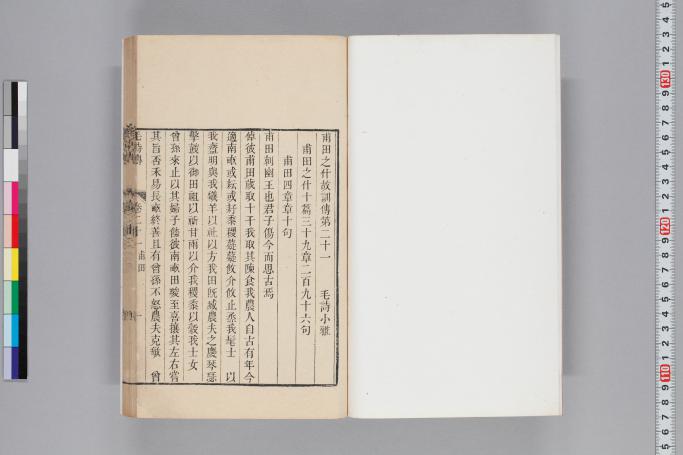 甫田之什故訓傳第二十一 毛詩小雅
甫田之什十篇三十九章二百九十六句
甫田四章章十句
甫田刺幽王也君子傷今而思古焉
倬彼甫田歲取十千我取其陳食我農人自古有年今
適南畝或耘或耔黍稷薿薿攸介攸止烝我髦士 以
我齍明與我犧羊以社以方我田旣臧農夫之慶琴瑟
擊鼓以御田祖以祈甘雨以介我稷黍以穀我士女
曾孫來止以其婦子饁彼南畝田畯至喜攘其左右嘗
其旨否禾易長畝終善且有曾孫不怒農夫克敏 曾
毛詩傳 卷二十一 甫田 一